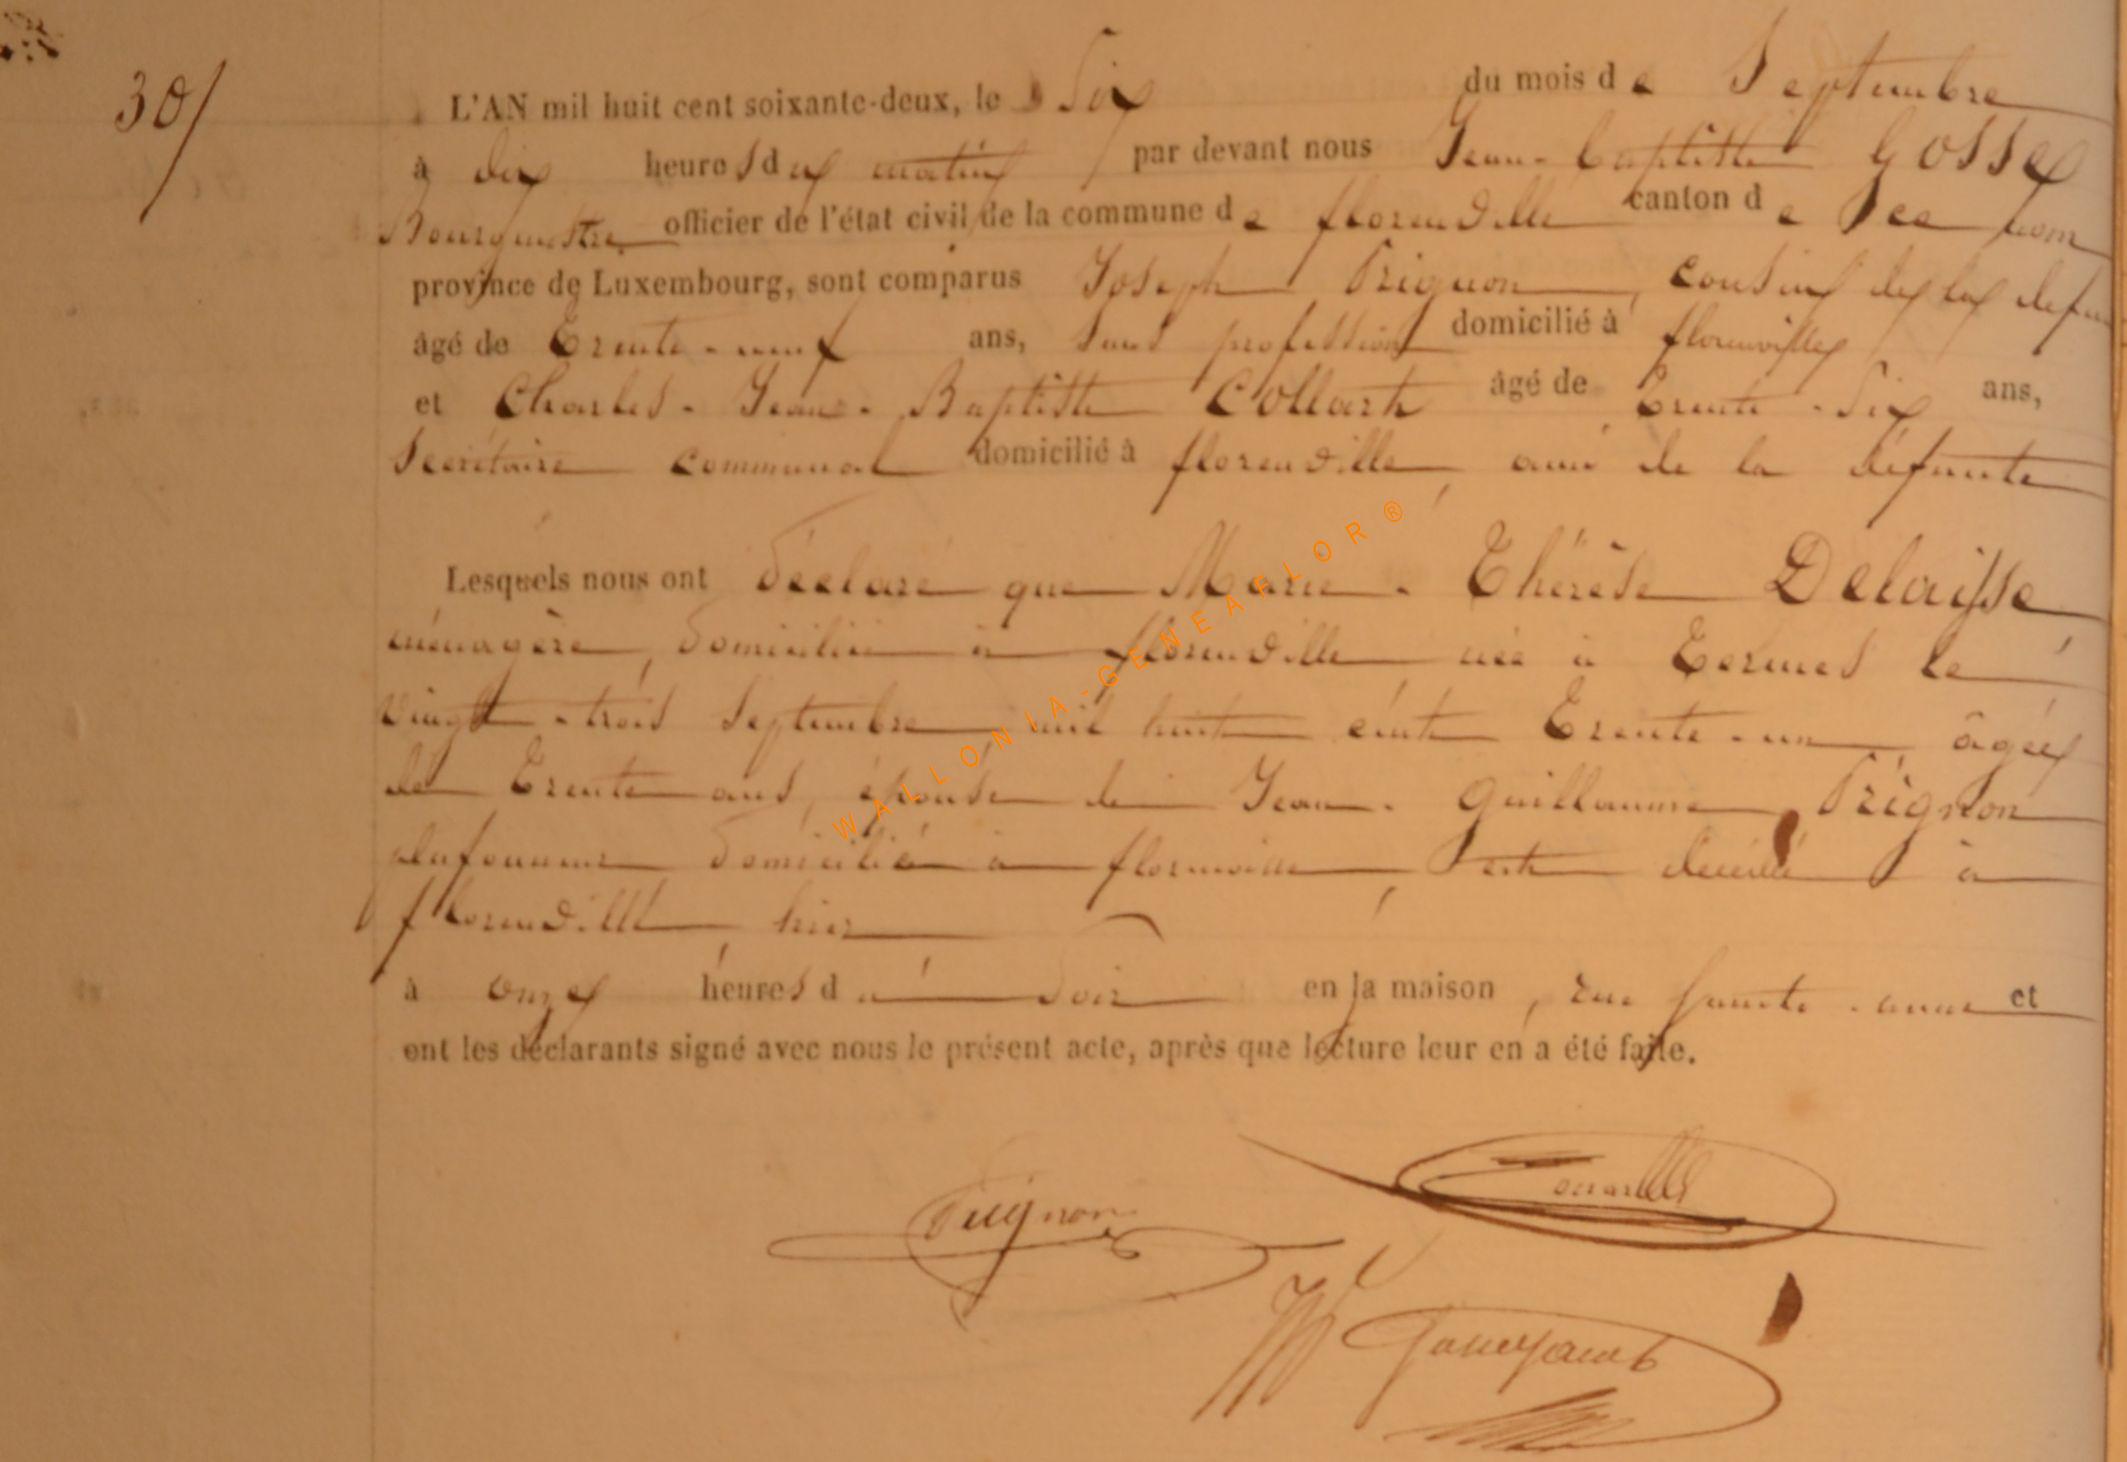 30/
L'AN mil huit cent soixante-deux, le Six du mois de Septembre
à dix heures du matin par devant nous Jean-baptiste Gosse
Bourgmestre officier de l'état civil de la commune de florenville canton de
province de Luxembourg, sont comparus Joseph Prignon, cousin de la défun
âgé de Trente-neuf ans, sans profession domicilié à florenville
et Charles-Jean-Baptiste Collart âgé de Trente-Six ans,
Secrétaire communal domicilié à florenville, ami de la défunte
Lesquels nous ont déclaré que Marie-Thérèse Delaisse
ménagère, domiciliée à florenville née à Termes le
vingt-trois Septembre mil huit cent Trente-un, âgée
de Trente ans, épouse de Jean-Guillaume Prignon
plafonneur domicilié à florenville, est décédé à
florenville, hier
à onze heures du soir en la maison, rue Sainte-anne et
ont les déclarants signé avec nous le présent acte, après que lecture leur en a été faite.
Prignon
WALLONIA-GENEAFLOR®